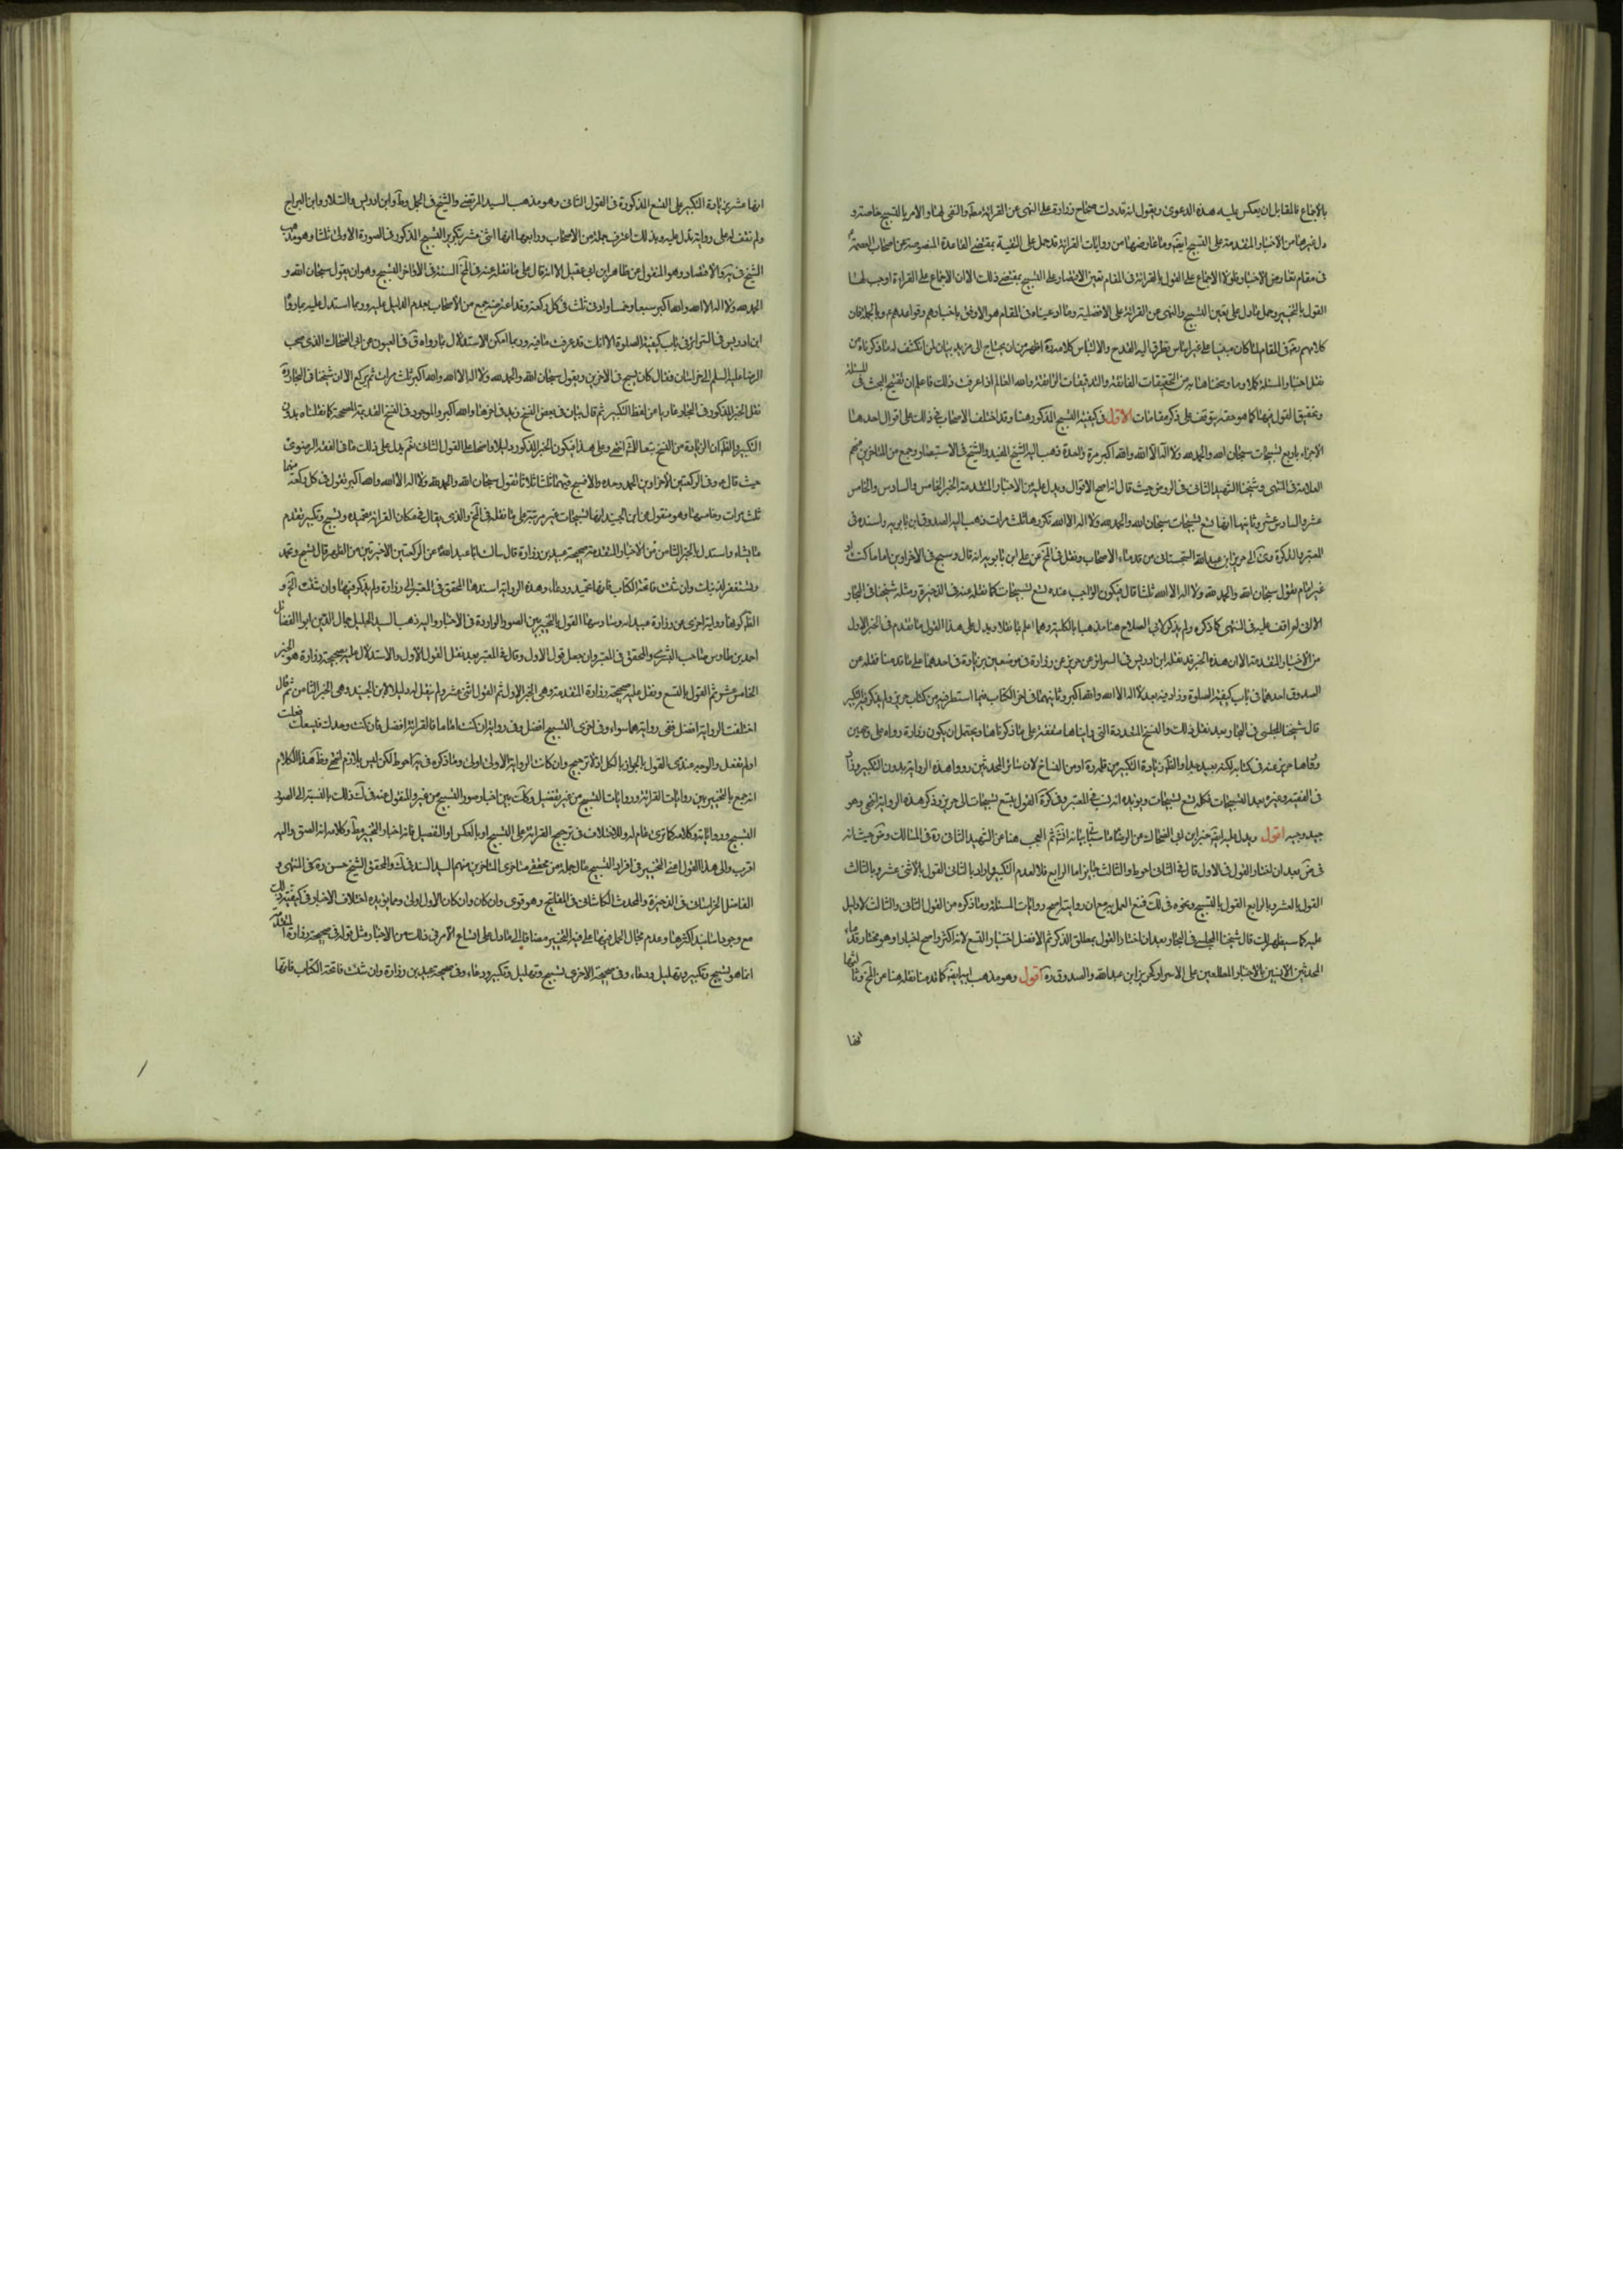 بالاجماع فالمقابل ان يعكس عليه هذه الدعوى ويقول انه قد دلت صحاح زرارة على النهى عن القرائة مطلقا والنفى لها والامر بالتسبيح خاصة و
دل غيرها من الاخبار المتقدمة على التسبيح ايضا وما عارضها من روايات القرائة قد حمل على التقية بمقتضى القاعدة المنصوصة عن اصحاب العصمة
فى مقام تعارض الاخبار فلولا الاجماع على القول بالقرائة فى المقام تعين الاقتصار على التسبيح بمقتضى ذلك الا ان الاجماع على القراءة اوجب لهنا
القول بالتخيير وحمل ما دل على تعين التسبيح والنهى عن القرائة على الافضلية وما ادعيناه فى المقام هو الاوفق باخبارهم وقواعدهم وبالجملة فان
كلامهم فى المقام لما كان مبنيا على غير اساس تطرق اليه القدح والالتباس كلامه اظهر من ان يحتاج الى مزيد بيان لمن انكشف له ما ذكرناه من
نقل اخبار المسئلة كلا وما وشحناها به من التحقيقات الفائقة والتدقيقات الرائقة والله العالم اذا عرفت ذلك فاعلم ان تنقيح البحث فى المسئلة
وتحقيق القول فيها كما هو حقه يتوقف على ذكر مقامات الاول فى كيفية التسبيح المذكور هنا وقد اختلف الاصحاب فى ذلك على اقوال احدها
الاجزاء باربع تسبيحات سبحان الله والحمد لله ولا اله الا الله والله اكبر مرة واحدة ذهب اليه الشيخ المفيد والشيخ فى الاستبصار وجمع من المتاخرين منهم
العلامة فى المنتهى وشيخنا الشهيد الثانى فى الروض حيث قال انه اصح الاقوال ويدل عليه من الاخبار المتقدمة الخبر الخامس والسادس والخامس
عشر والسادس عشر وثانيها انها تسع تسبيحات سبحان الله والحمد لله ولا اله الا الله تكررها ثلث مرات ذهب اليه الصدوق ابن بابويه واسنده فى
المعتبر والتذكرة الى حريز ابن عبد الله السجستانى من قدماء الاصحاب ونقل فى المخ عن على ابن بابويه انه قال وسبح فى الاخراوين اماما كنت او
غير امام تقول سبحان الله والحمد لله ولا اله الا الله ثلثا قال فيكون الواجب عنده تسع تسبيحات كما نقله عنه فى الذخيرة ومثله شيخنا فى البحار
الا انى لم اقف عليه فى المنتهى كما ذكره ولم يذكر لابى الصلاح هنا مذهبا بالكلية وهما اعلم بما نقلا ويدل على هذا القول ما تقدم فى الخبر الاول
من الاخبار المتقدمة الا ان هذه الخبر قد نقله ابن ادريس فى السرائر عن حريز عن زرارة فى موضعين بزيادة فى احدهما على ما قدمنا نقله عن
الصدوق احدهما فى باب كيفية الصلوة وزاد فيه بعد لا اله الا الله والله اكبر وثانيهما فى اخر الكتاب فيما استطرفه من كتاب حريز ولم يذكر فيه التكبير
قال شيخنا المجلسى فى البحار بعد نقل ذلك والنسخ المتعددة التى رايناها متفقة على ما ذكرناها ويحتمل ان يكون زرارة رواه على وجهين
ورواهما حريز عنه فى كتابه لكنه بعيد جدا والظاهر زيادة التكبير من قلمه او من النساخ لان سائر المحدثين رووا هذه الرواية بدون التكبير وزاد
فى الفقيه وغيره بعد التسبيحات تكمله تسع تسبيحات ويؤيده انه نسب فى المعتبر وفى كرة القول بتسع تسبيحات الى حريز وذكر هذه الرواية انتهى وهو
جيد وجيه اقول ويدل عليه ايضا خبر ابن ابى الضحاك عن الرضا ما سياتى بيانه انشاء الله ثم العجب هنا عن الشهيد الثانى ره فى المسالك وض حيث انه
فى ض بعد ان اختار القول فى الاول قال فى الثانى احوط والثالث جايز اما الرابع فلا لعدم التكبير واراد بالثانى القول بالاثنى عشر وبالثالث
القول بالعشر وبالرابع القول بالتسبيح ونحوه فى لك فمنع العمل به مع ان روايته اصح روايات المسئلة وما ذكره من القول الثانى والثالث لا دليل
عليه كما سيظهر لك قال شيخنا المجلسى فى البحار بعد ان اختار القول بمطلق الذكر ثم الافضل اختيار التسع لانه اكثر واصح اخبارا وهو مختار قدماء
المحدثين الانسين بالاخبار المطلعين على الاسرار كحريز ابن عبد الله والصدوق ره اقول وهو مذهب ابيه ايضا كما قدمنا نقله هنا عن المخ وثالثها
انها
انها عشر بزيادة التكبير على التسع المذكورة فى القول الثانى وهو مذهب السيد المرتضى والشيخ فى الجمل وط وابن ادريس والسلار وابن البراج
ولم نقف له على رواية تدل عليه وبذلك اعترف جملة من الاصحاب ورابعها انها اثنى عشر بتكرير التسبيح المذكور فى الصورة الاولى ثلثا وهو مذهب
الشيخ فى يه والاقتصاد وهو المنقول عن ظاهر ابن ابى عقيل الا انه قال على ما نقله عنه فى المخ السنة فى الاواخر التسبيح وهو ان يقول سبحان الله و
الحمد لله ولا اله الا الله والله اكبر سبعا او خمسا وادنى ثلث فى كل ركعة وقد اعترف جمع من الاصحاب بعدم الدليل عليه وربما استدل عليه بما رواه
ابن ادريس فى السرائر فى باب كيفية الصلوة الا انك قد عرفت ما فيه وربما امكن الاستدلال بما رواه ق فى العيون عن ابى الضحاك الذى صحب
الرضا عليه السلم الى خراسان فقال كان يسبح فى الاخرين ويقول سبحان الله والحمد لله ولا اله الا الله والله اكبر ثلث مرات ثم يركع الا ان شيخنا فى البحار ره
نقل الخبر المذكور فى البحار عاريا من لفظ التكبير ثم قال بيان فى بعض النسخ زيد فى اخرها والله اكبر والموجود فى النسخ القديمة المصححة كما نقلناه بدون
التكبير والظاهر ان الزيادة من النساخ تبعا للمشهور انتهى وعلى هذا فيكون الخبر المذكور دليلا واضحا على القول الثانى نعم يدل على ذلك ما فى الفقه الرضوى
حيث قال وفى الركعتين الاخراوين الحمد وحده والا فسبح فيهما ثلاثا ثلاثا تقول سبحان الله والحمد لله ولا اله الا الله والله اكبر تقول فى كل ركعة منهما
ثلث مرات وخامسها وهو منقول عن ابن الجنيد انها تسبيحات غير مرتبة على ما نقله فى المخ والذى يقال فى مكان القرائة تحميد وتسبيح وتكبير تقدم
ما يشاء واستدل بالخبر الثامن من الاخبار المتقدمة صحيحة عبيد بن زرارة قال سالت ابا عبد الله عن الركعتين الاخيرتين من الظهر قال تسبح وتحمد
وتستغفر لذنبك وان شئت فاتحة الكتاب فانها تحميد ودعاء وهذه الرواية اسندها المحقق فى المعتبر الى زرارة ولم يذكر فيها وان شئت الخ و
الظاهر كونها رواية اخرى عن زرارة وسادسها القول بالتخيير بين الصور الواردة فى الاخبار واليه ذهب السيد الجليل جمال الدين ابو الفضائل
احمد بن طاوس صاحب البشرى والمحقق فى المعتبر وان جعل قول الاول وقال فى المعتبر بعد نقل القول الاول والاستدلال عليه بصحيحة زرارة هو الخبر
الخامس عشر ثم القول بالتسع ونقل عليه صحيحة زرارة المتقدمة وهى الخبر الاول ثم القول باثنى عشر ولم ينقل له دليلا لابن الجنيد وهى الخبر الثامن ثم قال
اختلفت الرواية افضل ففى رواية هما سواء وفى اخرى التسبيح افضل وفى رواية ان كنت اماما فالقرائة افضل فان كنت وحدك فليسعك فعلت
او لم تفعل والوجه عندى القول بالجواز بالكل اذ لا ترجيح وان كانت الرواية الاولى اولى وما ذكره فى يه احوط لكن ليس بلازم انتهى وظاهر هذا الكلام
انه جمع بالتخيير بين روايات القرائة وروايات التسبيح من غير تفضيل وكذلك بين اخبار صور التسبيح من غير والمنقول عنه فى ذلك بالنسبة الى الصور
التسبيح ورواياته وكلامه كما ترى عام له وللاختلاف فى ترجيح القرائة على التسبيح او بالعكس او التفصيل فانه اختار التخيير مطلقا وكلامه انه الصق واليه
اقرب والى هذا القول اعنى التخيير فى افراد التسبيح مال جملة من محققى متاخرى المتاخرين منهم السيد السند فى ك والمحقق الشيخ حسن ره فى المنتهى و
الفاضل الخراسانى فى الذخيرة والمحدث الكاشانى فى المفاتيح وهو قوى وان كان وان كان الاول اولى ومما يؤيده اختلاف الاخبار فى كيفيته ذلك
مع وجود اسانيد اكثرها وعدم مجال الحمل فيها على غير التخيير مضافا الى ما دل على اتساع الامر فى ذلك من الاخبار مثل قوله فى صحيحة زرارة
انما هو تسبيح وتكبير وتهليل ودعاء وفى صحيحة الاخرى تسبيح وتهليل وتكبير ودعاء وفى صحيحة عبيد بن زرارة وان شئت فاتحة الكتاب فانها